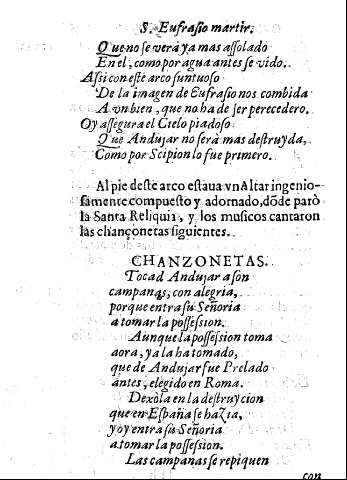 S. Eufrasio martir.
Que no se verà ya mas assolado
En el, como por agua antes se vido.
Assi con este arco suntuoso
De la imagen de Eufrasio nos combida
A vn bien, que no ha de ser perecedero.
Oy assegura el Cielo piadoso
Que Andujar no serà mas destruyda,
Como por Scipion lo fue primero.
Al pie deste arco estaua vn Altar ingenio-
samente compuesto y adornado, dõde parò
la Santa Reliquia, y los musicos cantaron
las chançonetas siguientes.
CHANZONETAS.
Tocad Andujar a son
campanas, con alegria,
porque entra su Señoria
a tomar la possession.
Aunque la possession toma
aora, ya la ha tomado,
que de Andujar fue Prelado
antes, elegido en Roma.
Dexòla en la destruycion
que en España se hazia,
y oy entra su Señoria
a tomar la possession.
Las campanas se repiquen
con